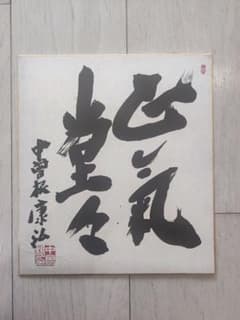 正氣
堂々
中曽根康弘